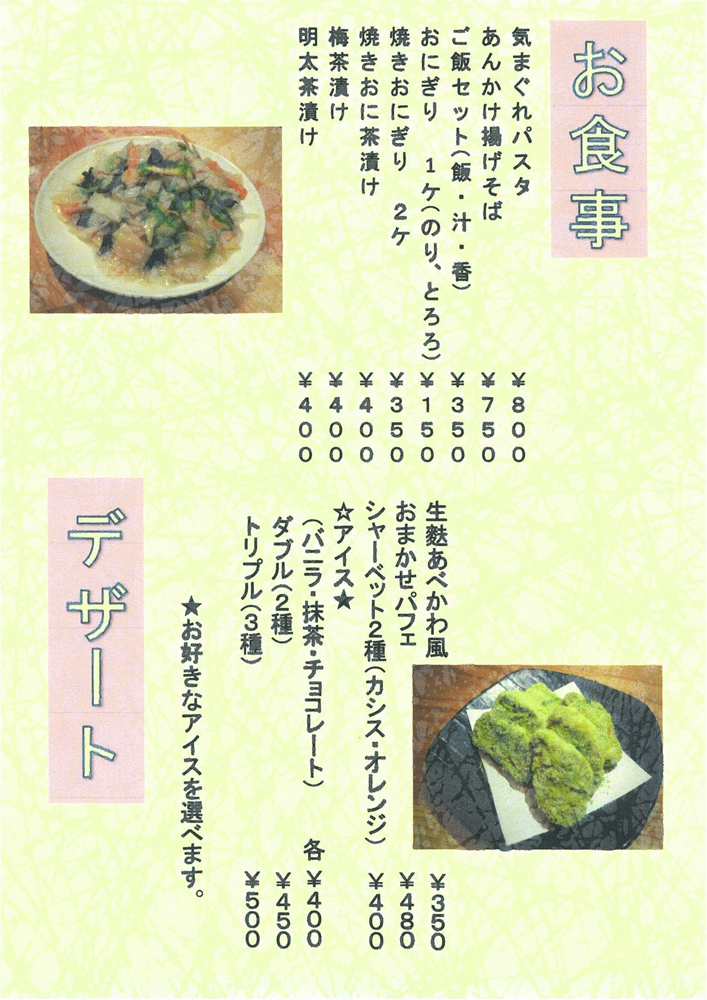 お食事
気まぐれパスタ ¥800
あんかけ揚げそば ¥750
ご飯セット(飯・汁・香) ¥350
おにぎり 1ケ(のり、とろろ) ¥150
焼きおにぎり 2ケ ¥350
焼きおに茶漬け ¥400
梅茶漬け ¥400
明太茶漬け ¥400
生麩あべかわ風 ¥350
おまかせパフェ ¥480
シャーベット2種(カシス・オレンジ) ¥400
☆アイス★
(バニラ・抹茶・チョコレート) 各 ¥400
ダブル(2種) ¥450
トリプル(3種) ¥500
★お好きなアイスを選べます。
デザート